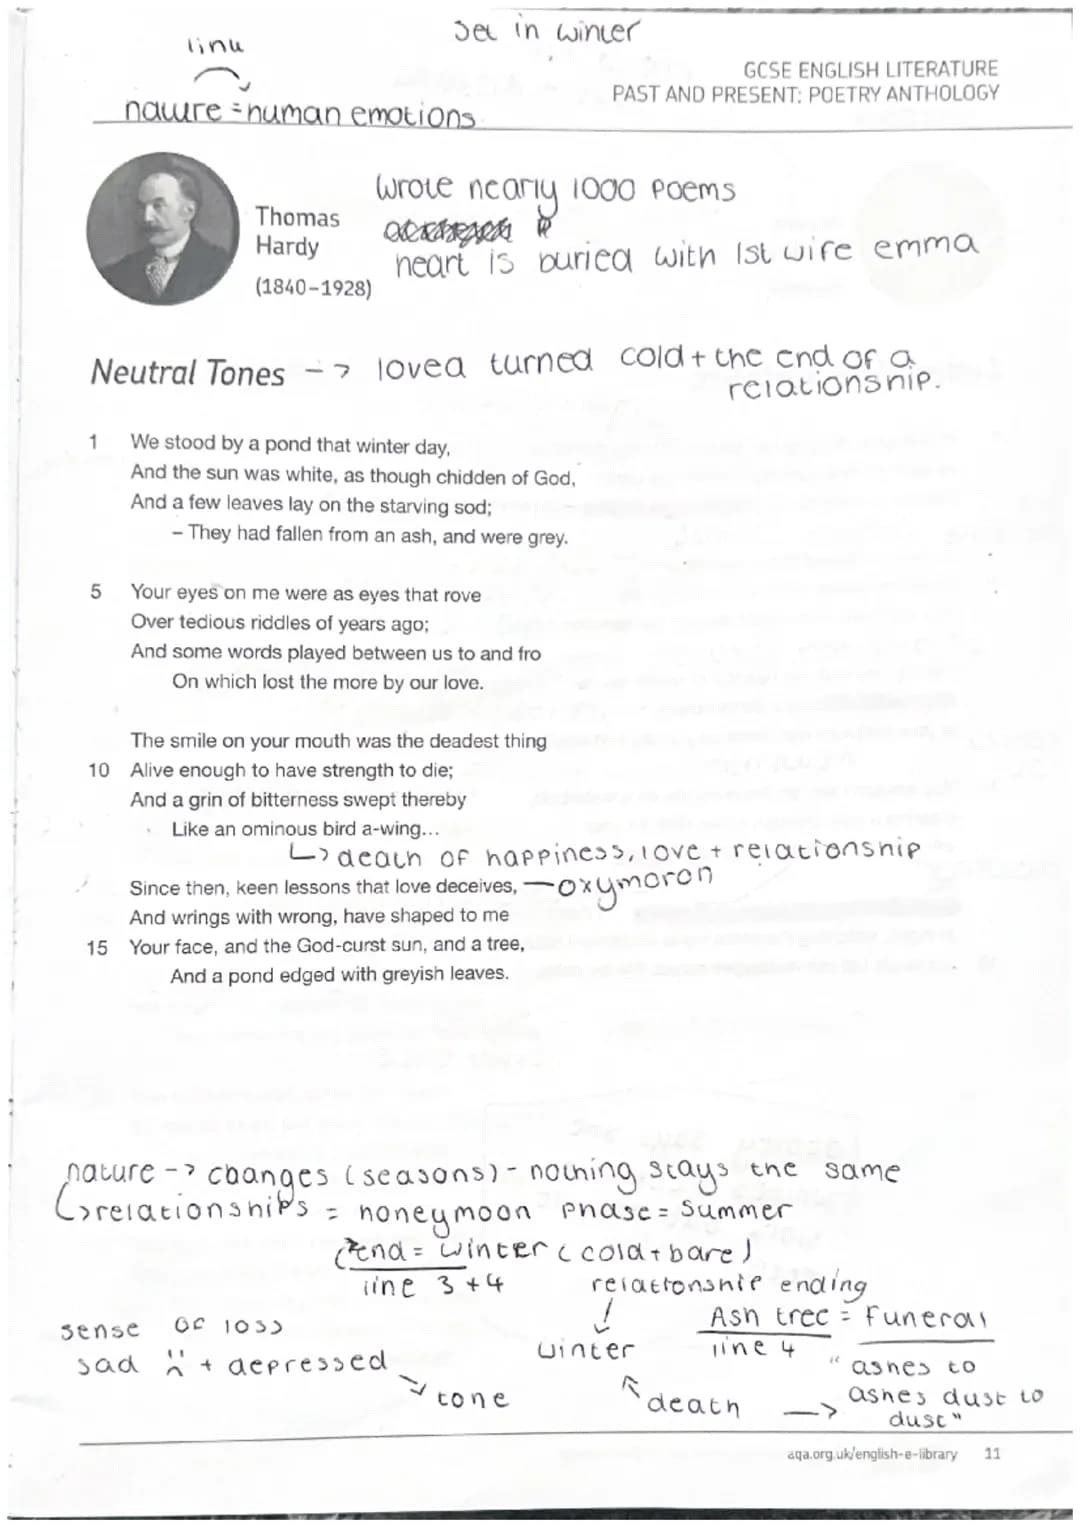 set in winter
link
GCSE ENGLISH LITERATURE
PAST AND PRESENT: POETRY ANTHOLOGY
nature = human emotions
wrote nearly 1000 poems
Thomas
Hardy
heart is buried with 1st wife emma
(1840–1928)
Neutral Tones --> lovea turned cold + the end of a
relationship.
1 We stood by a pond that winter day,
And the sun was white, as though chidden of God,
And a few leaves lay on the starving sod;
– They had fallen from an ash, and were grey.
5 Your eyes on me were as eyes that rove
Over tedious riddles of years ago;
And some words played between us to and fro
On which lost the more by our love.
The smile on your mouth was the deadest thing
10 Alive enough to have strength to die;
And a grin of bitterness swept thereby
Like an ominous bird a-wing...
↳ death of happiness, love + relationship
Since then, keen lessons that love deceives, — oxymoron
And wrings with wrong, have shaped to me
15 Your face, and the God-curst sun, and a tree,
And a pond edged with greyish leaves.
nature -> changes (seasons) - nothing stays the same
↳ relationships = honeymoon phase = summer
end = winter (cold + bare)
line 3 + 4
relationship ending
Ash tree = funeral
sense of loss
winter
line 4
sad + depressed
"ashes to
tone
death ->
ashes dust to
dust"
aqa.org.uk/english-e-library 11